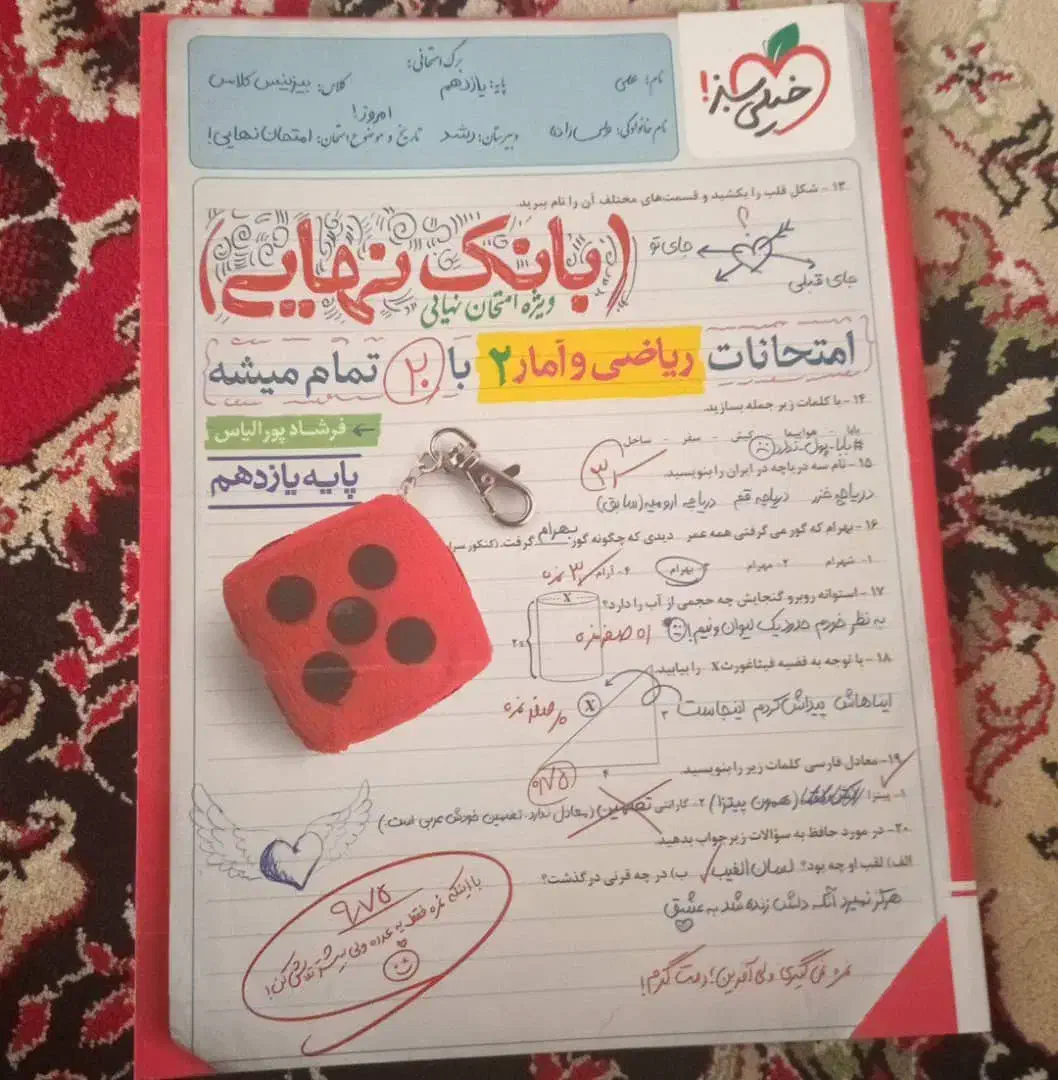 خیلی سبز!
برگ امتحانی:
نام: علی
پایه: یازدهم
کلاس: بیزینس کلاس
نام خانوادگی:
دبیرستان: رشد
تاریخ و موضوع امتحان: امروز! امتحان نهایی!
۱۳- شکل قلب را بکشید و قسمت‌های مختلف آن را نام ببرید.
جای تو
جای قبلی
(بانک نهایی)
ویژه امتحان نهایی
امتحانات ریاضی و آمار ۲ با ۲۰ تمام میشه
فرشاد پورالیاس
پایه یازدهم
۱۴- با کلمات زیر جمله بسازید.
بابا - هواپیما - کیش - سفر - ساحل
#بابا-پول-ندارد
۱۵- نام سه دریاچه در ایران را بنویسید.
دریاچه خزر دریاچه قم دریاچه ارومیه (سابق)
۱۶- بهرام که گور می گرفتی همه عمر دیدی که چگونه گور بهرام گرفت. (کنکور سرا
۱- شهرام ۲- مهرام ۳- بهرام ۴- آرام
۳ نمره
۱۷- استوانه روبرو گنجایش چه حجمی از آب را دارد؟
X
۲x
به نظر خودم حدود یک لیوان و نیم!
صفر نمره
۱۸- با توجه به قضیه فیثاغورث X را بیابید.
ایناهاش پیداش کردم اینجاست
X
۳
۴
صفر نمره
۹/۷۵
۱۹- معادل فارسی کلمات زیر را بنویسید.
۱- پیتزا (همون پیتزا) ۲- گارانتی تضمین (معادل ندارد، تضمین خودش عربی است.)
۲۰- در مورد حافظ به سؤالات زیر جواب بدهید.
الف) لقب او چه بود؟ لسان الغیب ب) در چه قرنی درگذشت؟
هرگز نمیرد آنکه دلش زنده شد به عشق
۹/۷۵
با اینکه نمره فقط یه عدده ولی بیشتر تلاش کن!
نمره نمی‌گیری ولی آفرین؛ دمت گرم!